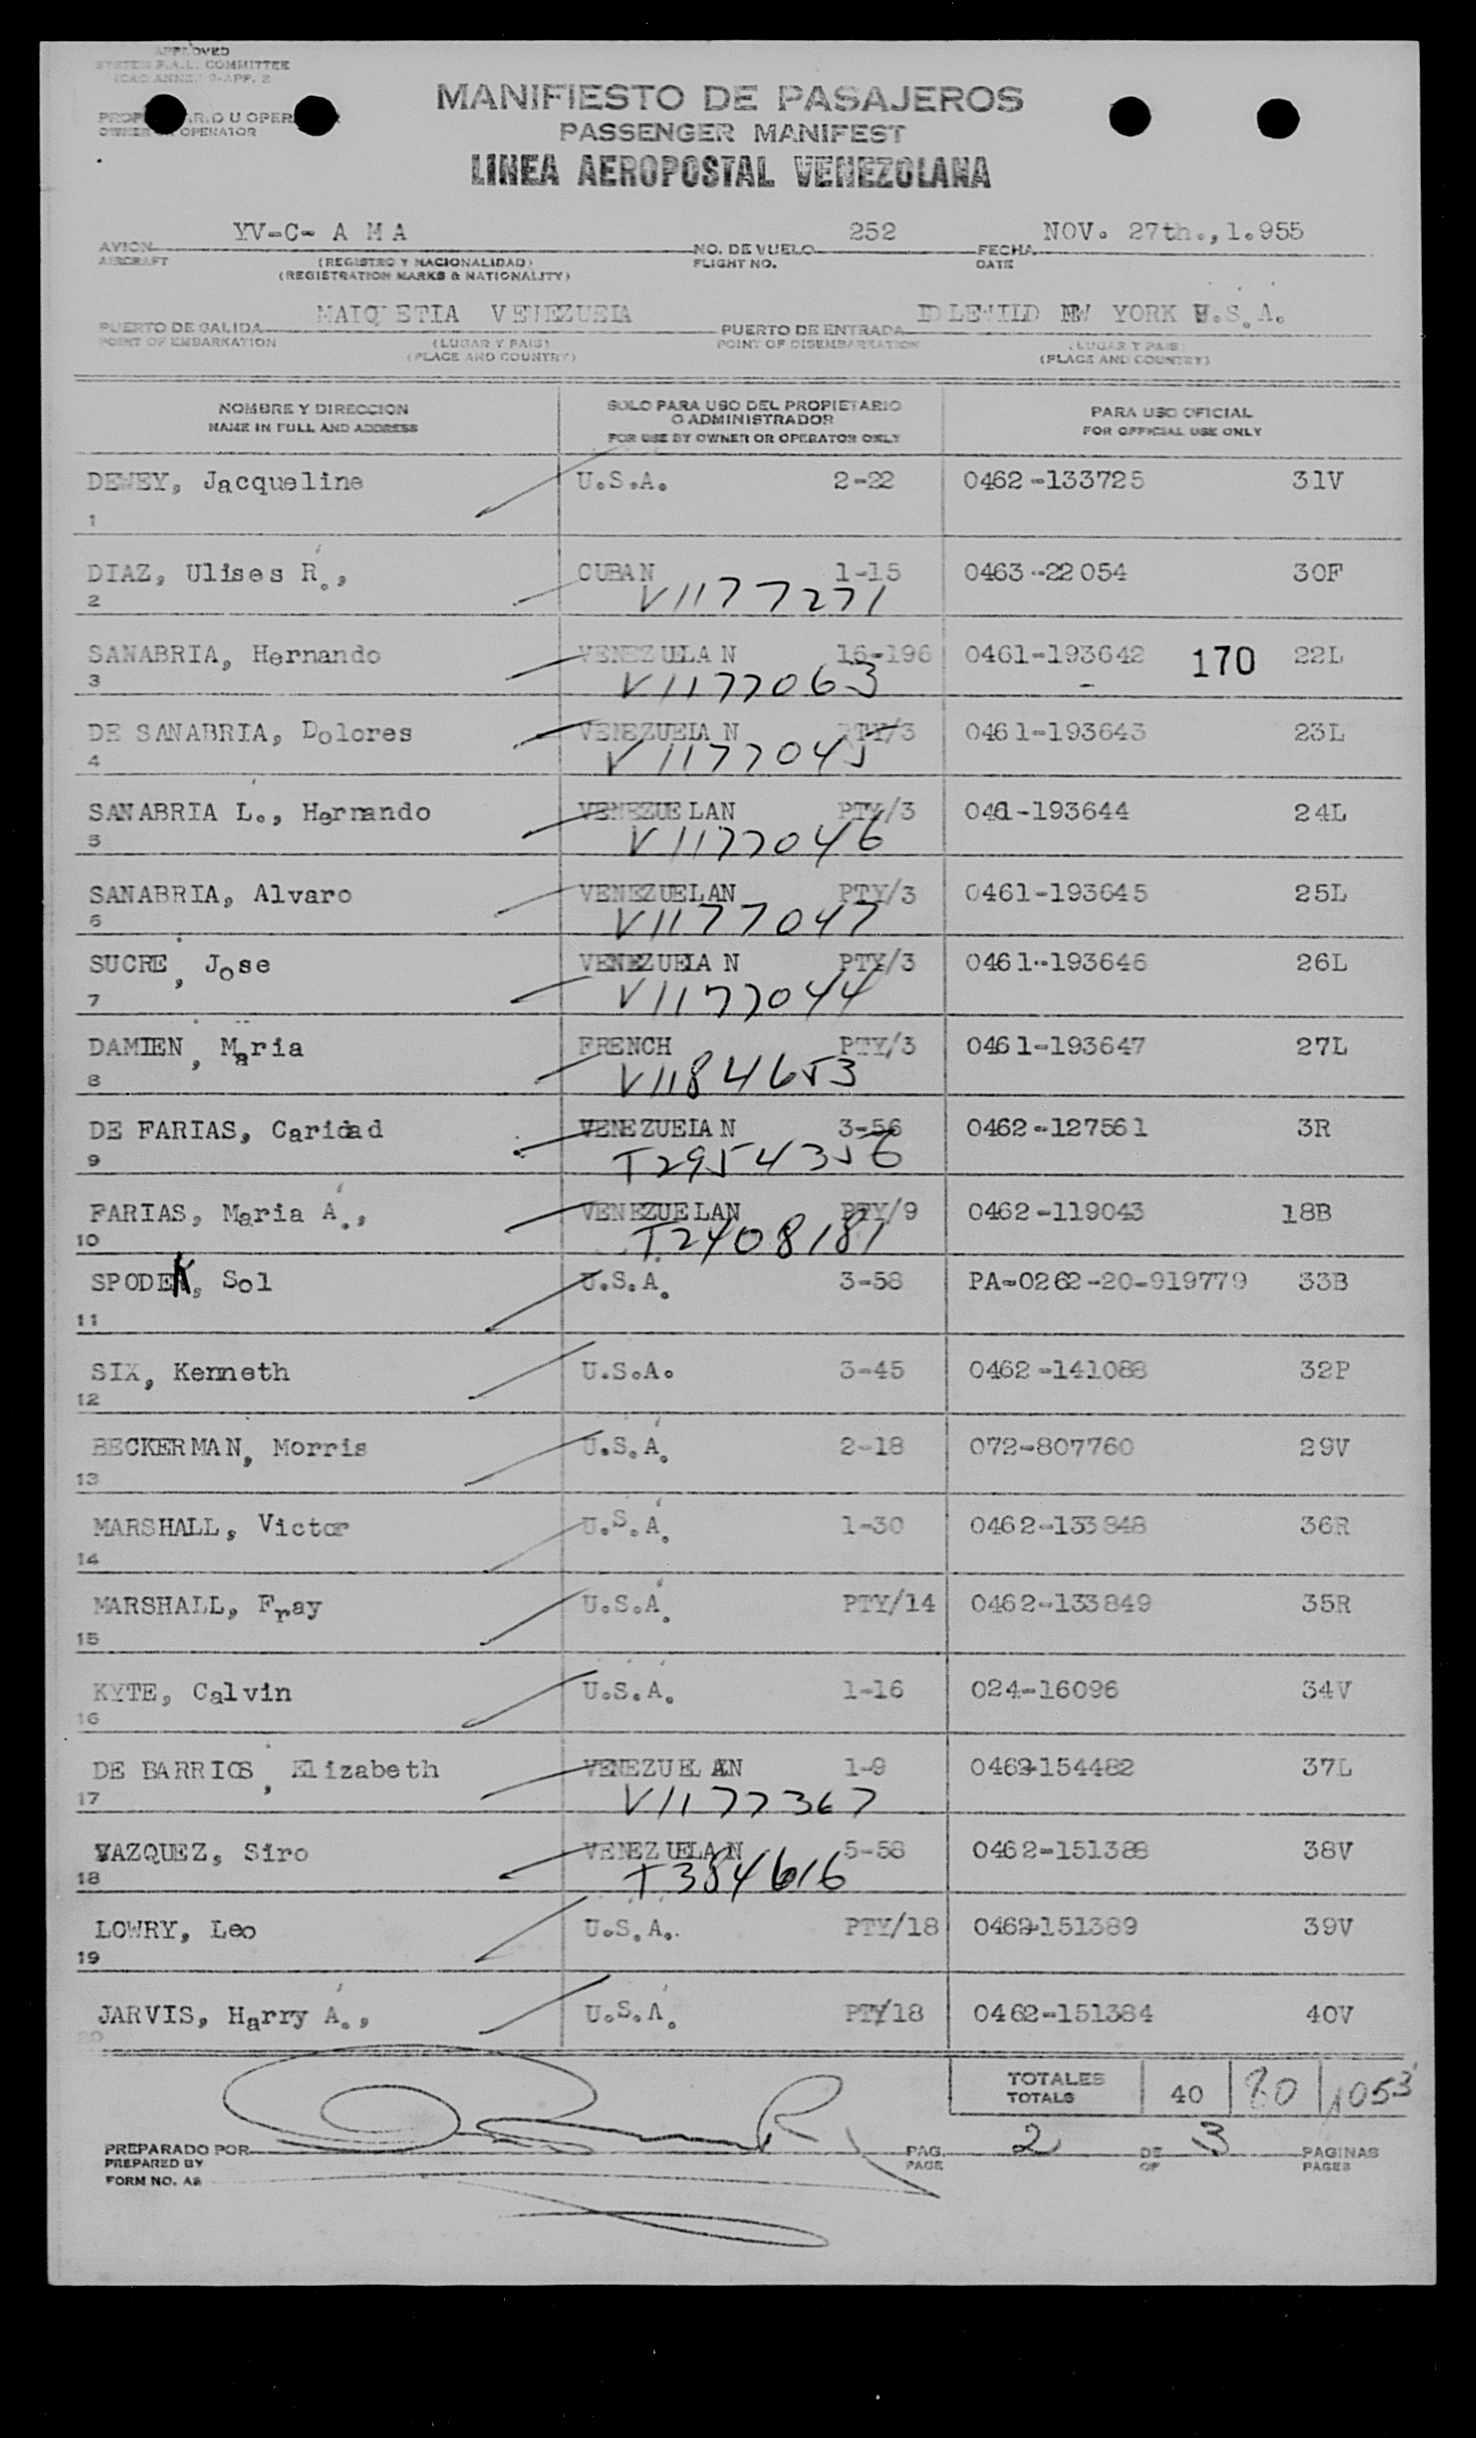 APPROVED
SYSTEM F.A.L. COMMITTEE
ICAO ANNEX 9-APP. 2
OWNER OR OPERATOR
MANIFIESTO DE PASAJEROS
PASSENGER MANIFEST
LINEA AEROPOSTAL VENEZOLANA
YV-C- A M A 252 NOV. 27th., 1.955
AVION NO. DE VUELO FECHA
AIRCRAFT (REGISTRO Y NACIONALIDAD) FLIGHT NO. DATE
(REGISTRATION MARKS & NATIONALITY)
MAIQUETIA VENEZUELA IDLEWILD NEW YORK U.S.A.
PUERTO DE SALIDA PUERTO DE ENTRADA
POINT OF EMBARKATION (LUGAR Y PAIS) POINT OF DISEMBARKATION (LUGAR Y PAIS)
(PLACE AND COUNTRY) (PLACE AND COUNTRY)
NOMBRE Y DIRECCION SOLO PARA USO DEL PROPIETARIO PARA USO OFICIAL
NAME IN FULL AND ADDRESS O ADMINISTRADOR FOR OFFICIAL USE ONLY
FOR USE BY OWNER OR OPERATOR ONLY
DEWEY, Jacqueline U.S.A. 2-22 0462-133725 31V
1
DIAZ, Ulises R., CUBAN 1-15 0463-22054 30F
2 V1177271
SANABRIA, Hernando VENEZUELAN 16-196 0461-193642 170 22L
3 V1177063
DE SANABRIA, Dolores VENEZUELAN PTY/3 0461-193643 23L
4 V1177045
SANABRIA L., Hernando VENEZUELAN PTY/3 0461-193644 24L
5 V1177046
SANABRIA, Alvaro VENEZUELAN PTY/3 0461-193645 25L
6 V1177047
SUCRE, Jose VENEZUELAN PTY/3 0461-193646 26L
7 V1177044
DAMIEN, Maria FRENCH PTY/3 0461-193647 27L
8 V1184653
DE FARIAS, Caridad VENEZUELAN 3-56 0462-127561 3R
9 T2954356
FARIAS, Maria A., VENEZUELAN PTY/9 0462-119043 18B
10 T2408181
SPODEK, Sol U.S.A. 3-58 PA-0262-20-919779 33B
11
SIX, Kenneth U.S.A. 3-45 0462-141088 32P
12
BECKERMAN, Morris U.S.A. 2-18 072-807760 29V
13
MARSHALL, Victor U.S.A. 1-30 0462-133848 36R
14
MARSHALL, Fray U.S.A. PTY/14 0462-133849 35R
15
KYTE, Calvin U.S.A. 1-16 024-16096 34V
16
DE BARRIOS, Elizabeth VENEZUELAN 1-9 0462-154482 37L
17 V1177367
VAZQUEZ, Siro VENEZUELAN 5-58 0462-151388 38V
18 T384616
LOWRY, Leo U.S.A. PTY/18 0462-151389 39V
19
JARVIS, Harry A., U.S.A. PTY/18 0462-151384 40V
20
TOTALES
TOTALS 40 1053
PREPARADO POR PAG. 2 DE 3 PAGINAS
PREPARED BY PAGE OF PAGES
FORM NO. A8